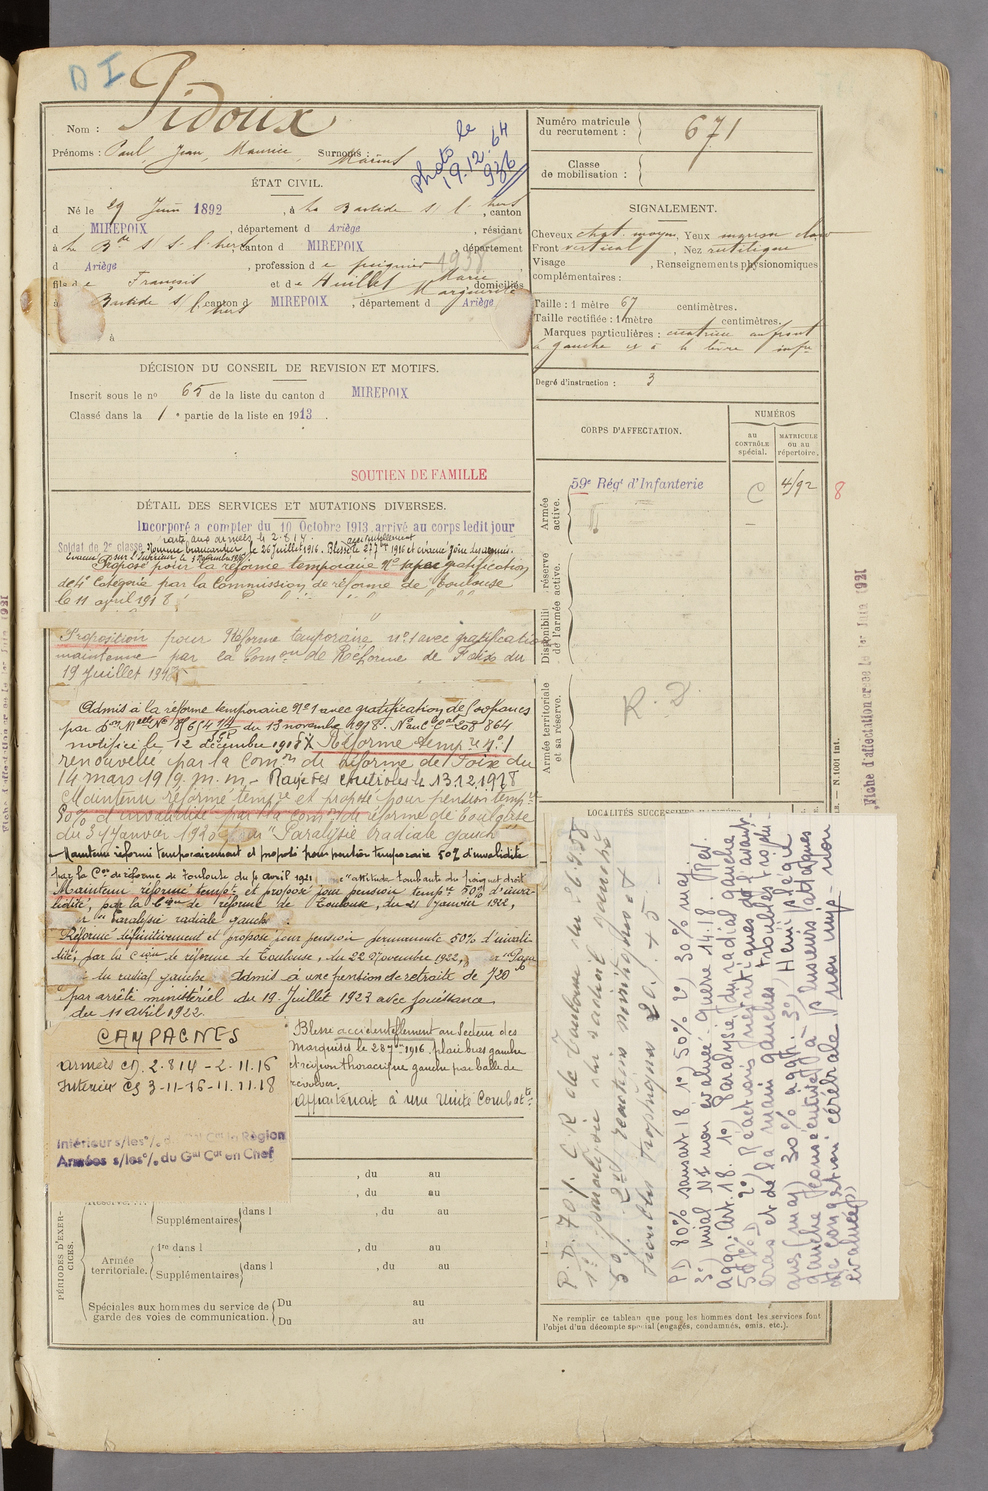 D I
Nom : Pidoux
Prénoms : Paul, Jean, Maurice, Surnoms : Marius
photo le
19.12.64
936
ÉTAT CIVIL.
Né le 29 Juin 1892, à La Bastide s/ l'hers, canton
d MIREPOIX, département d Ariège, résidant
à La Bde s/ l'hers canton d MIREPOIX, département
d Ariège, profession d e peignier 1938
fils d e François et d e Huillet Marie Marguerite domiciliés
à Bastide s/ l'hers, canton d MIREPOIX, département d Ariège
à
DÉCISION DU CONSEIL DE REVISION ET MOTIFS.
Inscrit sous le no 65 de la liste du canton d MIREPOIX
Classé dans la 1 e partie de la liste en 1913.
SOUTIEN DE FAMILLE
DÉTAIL DES SERVICES ET MUTATIONS DIVERSES.
Incorporé à compter du 10 Octobre 1913, arrivé au corps ledit jour
Soldat de 2e classe
parti aux armées le 2.8.14.
Nommé brancardier le 26 Juillet 1916. Blessé accidentellement le 1916 et évacué
Evacué sur l'Intérieur le 3 Novembre 1916
Proposé pour la réforme temporaire no 1 avec gratification
de 4e Catégorie par la Commission de réforme de Toulouse
le 11 avril 1918
Proposition pour Réforme temporaire no 1 avec gratification
maintenue par la Comon de Réforme de Foix du
19 Juillet 1918
Admis à la réforme temporaire no 1 avec gratification de
par du 13 novembre 1918. 864
notifiée le 12 décembre 1918 Réforme tempre no 1
renouvelée par la Comon de réforme de Foix du
14 mars 1919. m.m- Rayé des contrôles le 13.12.1918
Maintenu réformé tempre et proposé pour pension tempre
50% d'invalidité par la Comon de réforme de Toulouse
du 3 Janvier 1920 pr "Paralysie radiale gauche
Maintenu réformé temporairement et proposé pour pension temporaire 50% d'invalidité
par la Con de réforme de Toulouse du 4 avril 1921 pr "attitude tombante du poignet droit
Maintenu réformé tempre et proposé pour pension tempre 50% d'inva-
lidité, par la Con de réforme de Toulouse, du 21 Janvier 1922,
pr "Paralysie radiale gauche
Réformé définitivement et proposé pour pension permanente 50% d'invali-
dité, par la Con de réforme de Toulouse, du 22 Novembre 1922,
du radial gauche Admis à une pension de retraite de 720
par arrêté ministériel du 19 Juillet 1923 avec jouissance
du 11 avril 1922.
CAMPAGNES
armées CD. 2.8.14 - 2.11.16
Intérieur CS 3-11-16-11.11.18
Intérieur s/les o/. du Gal Cdt la Région
Armées s/les o/. du Gal Cdt en Chef
Blessé accidentellement au Secteur des
Marquises le 1916. plaie bras gauche
et région thoracique gauche par balle de
revolver.
Appartenait à une Unité Combatte
, du au
, du au
Supplémentaires dans l , du au
PÉRIODES D'EXER-
CICES.
Armée
territoriale.
1re dans l , du au
Supplémentaires dans l , du au
Spéciales aux hommes du service de
garde des voies de communication.
Du au
Du au
Numéro matricule
du recrutement : 671
Classe
de mobilisation :
SIGNALEMENT.
Cheveux chat. moyen, Yeux marron clair
Front vertical, Nez rectiligne
Visage , Renseignements physionomiques
complémentaires :
Taille : 1 mètre 67 centimètres.
Taille rectifiée : 1 mètre centimètres.
Marques particulières : cicatrice au front
à gauche et à la lèvre infre
Degré d'instruction : 3
CORPS D'AFFECTATION.
NUMÉROS
au
CONTRÔLE
spécial.
MATRICULE
ou au
répertoire.
Armée
active.
59e Régt d'Infanterie
C
4/92
8
Disponibilité, réserve
de l'armée active.
Armée territoriale
et sa réserve.
R. D
LOCALITÉS SUCCESSIVES
Fiche d'affectation créée le 1er Juin 1921
N. 1001 Int.
P.D. 70% C.R. de Toulouse du 6.9.50
1o) paralysie du radial gauche
50% 2o) réaction névritique et
troubles trophiques 20% + 5 -
PD 80% sans art 18. 1o) 50% 2o) 30% maj.
3o) inval. Nt non évaluée. Guerre 14.18. Réf
agg. Art. 18. 1o) Paralysie du radial gauche
50% P.D 2o) Réactions névritiques de l'avant-
bras et de la main gauches troubles trophi-
ques (maj) 30% agg. 3o) Hémiplégie
gauche consécutive à plusieurs attaques
de congestion cérébrale non imp- non
évaluée)
Ne remplir ce tableau que pour les hommes dont les services font
l'objet d'un décompte spécial (engagés, condamnés, omis, etc.).